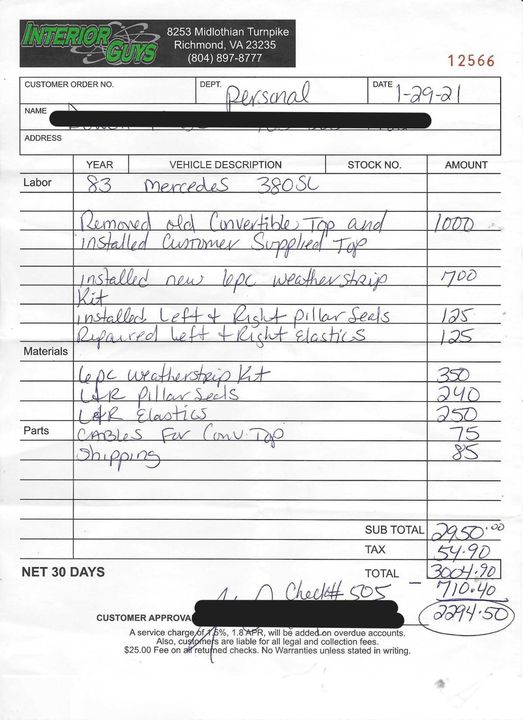 INTERIOR GUYS
8253 Midlothian Turnpike
Richmond, VA 23235
(804) 897-8777
12566
CUSTOMER ORDER NO. DEPT. Personal DATE 1-29-21
NAME
ADDRESS
YEAR VEHICLE DESCRIPTION STOCK NO. AMOUNT
Labor 83 Mercedes 380SL
Removed old Convertible Top and 1000
installed Customer Supplied Top
installed new 6pc weatherstrip 700
Kit
installed Left & Right pillar Seals 125
Repaired Left & Right Elastics 125
Materials
6pc weatherstrip Kit 350
L&R pillar Seals 240
L&R Elastics 250
Parts CABLes For Conv. Top 75
Shipping 85
SUB TOTAL 2950.00
TAX 54.90
NET 30 DAYS TOTAL 3004.90
Check# 505 - 710.40
CUSTOMER APPROVA 2294.50
A service charge of 1.5%, 1.8 APR, will be added on overdue accounts.
Also, customers are liable for all legal and collection fees.
$25.00 Fee on all returned checks. No Warranties unless stated in writing.